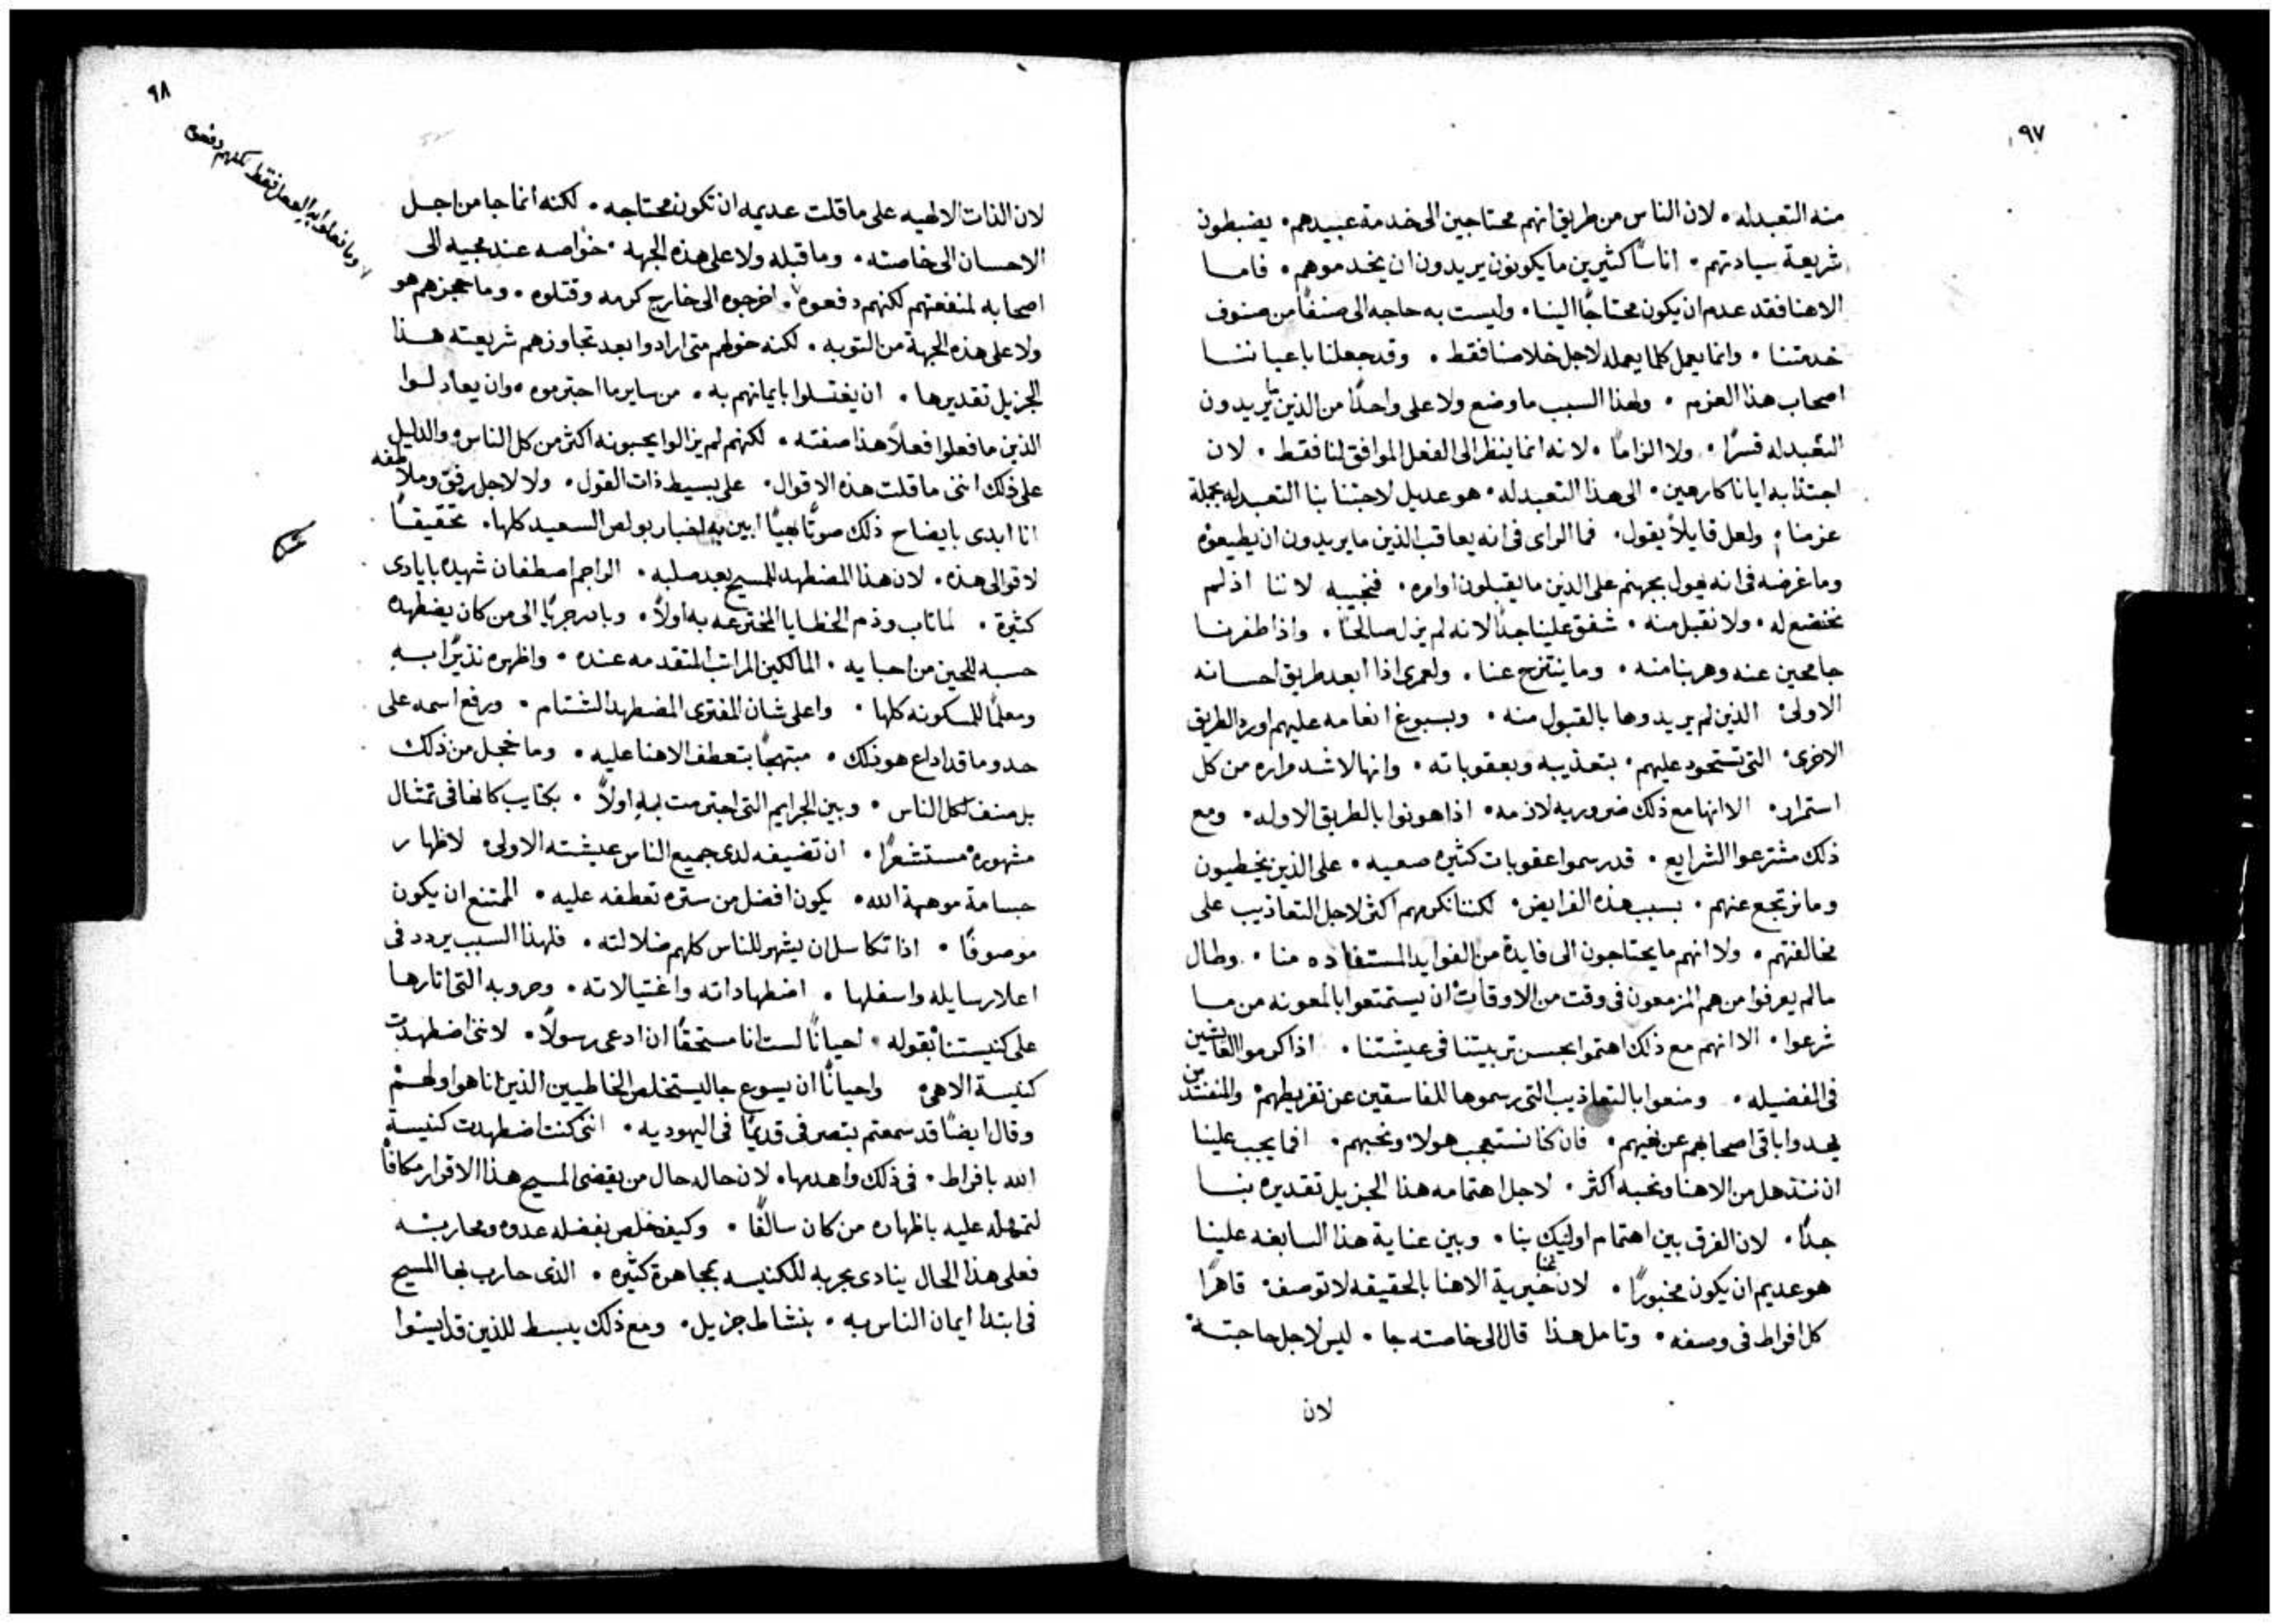 ٩٧
منه التعبد له . لان الناس من طريق انهم محتاجين الى خدمة عبيدهم . يضبطون
شريعة سيادتهم . اناسًا كثيرين ما يكونون يريدون ان يخدموهم . فاما
الاهنا فقد عدم ان يكون محتاجًا الينا . وليست به حاجه الى صنفًا من صنوف
خدمتنا . وانما يعمل كلما يعمله لاجل خلاصنا فقط . وقد جعلنا باعياننا
اصحاب هذا العزم . ولهذا السبب ما وضع ولا على واحدًا من الذين ما يريدون
التعبد له قسرًا . ولا الزامًا . لانه انما ينظر الى الفعل الموافق لنا فقط . لان
اجتذابه ايانا كارهين . الى هذا التعبد له . هو عديل لاجتنابنا التعبد له بجملة
عزمنا . ولعل قايلاً يقول . فما الراى فى انه يعاقب الذين ما يريدون ان يطيعوه
وما غرضه فى انه يهول بجهنم على الذين ما يقبلون اوامره . فنجيبه لاننا اذ لم
نخضع له . ولا نقبل منه . شفق علينا جدًا لانه لم يزل صالحًا . واذا طفرنا
جامحين عنه وهربنا منه . وما ينتزح عنا . ولعمرى اذا ابعد طريق احسانه
الاولى الذين لم يريدوها بالقبول منه . وبسبوغ انعامه عليهم اورد الطريق
الاخرى . التى تستحوذ عليهم . بتعذيبه وبعقوباته . وانها لاشد مراره من كل
استمرار . الا انها مع ذلك ضروريه لازمه . اذا هونوا بالطريق الاوله . ومع
ذلك مشترعوا الشرايع . قد رسموا عقوبات كثيره صعبه . على الذين يخطيون
وما نرتجع عنهم . بسبب هذه الفرايض . لكننا نكرمهم اكثر لاجل التعاذيب على
مخالفتهم . ولا انهم ما يحتاجون الى فايدة من الفوايد المستفاده منا . وطال
ما لم يعرفوا من هم المزمعون فى وقت من الاوقات ان يستمتعوا بالمعونه من ما
شرعوا . الا انهم مع ذلك اهتموا بحسن تربيتنا فى عيشتنا . اذ اكرموا العايشين
فى الفضيله . ومنعوا بالتعاذيب التى رسموها للفاسقين عن تفريطهم
باقى اصحابهم عن غيهم . فان كنا نستعجب هولا ونحبهم . افما يجب علينا
ان ننذهل من الاهنا ونحبه اكثر . لاجل اهتمامه هذا الجزيل تقديره بنا
جدًا . لان الفرق بين اهتمام اوليك بنا . وبين عناية هذا السابغه علينا
هو عديم ان يكون مخبورًا . لان خيرية الاهنا بالحقيقه لا توصف . قاهرًا
كل افراط فى وصفه . وتامل هذا قال الى خاصته جا . ليس لاجل حاجته
لان
٩٨
لان الذات الالهيه على ما قلت عديمه ان تكون محتاجه . لكنه انما جا من اجل
الاحسان الى خاصته . وما قبله ولا على هذه الجهه . خواصه عند مجيه الى
اصحابه لمنفعتهم لكنهم دفعوه . اخرجوه الى خارج كرمه وقتلوه . وما حجزهم هو
وما فعلوا هذا الفعل فقط لكنهم
ولا على هذه الجهة من التوبه . لكنه خولهم متى ارادوا بعد تجاوزهم شريعته هذا
الجزيل تقديرها . ان يغتسلوا بايمانهم به . من ساير ما اجترموه . وان يعادلوا
الذين ما فعلوا فعلاً هذا صفته . لكنهم لم يزالوا يحبونه اكثر من كل الناس . والدليل
على ذلك اننى ما قلت هذه الاقوال . على بسيط ذات القول . ولا لاجل رفق وملاطفه
انا ابدى بايضاح ذلك صوتًا بهيًا ابين به اخبار بولص السعيد كلها . تحقيقًا
لاقوالى هذه . لان هذا المضطهد للمسيح بعد صلبه . الراجم اصطفان شهيده بايادى
كثيرة . لما تاب وذم الخطايا المخترعه به اولاً . وبادر جريًا الى من كان يضطهده
حسبه للحين من احبايه . المالكين المراتب المتقدمه عنده . واظهره نذيرًا به
ومعلمًا للمسكونه كلها . واعلى شان المفترى المضطهد الشتام . ورفع اسمه على
حد وما قد اذاع هو ذلك . مبتهجًا بتعطف الاهنا عليه . وما خجل من ذلك
بل صنف لكل الناس . وبين الجرايم التى اجترمت به اولاً . بكتايب كانها فى تمثال
مشهوره مستشعرًا . ان تضيفه لدى جميع الناس عيشته الاولى لاظهار
جسامة موهبة الله . يكون افضل من ستره تعطفه عليه . الممتنع ان يكون
موصوفًا . اذا تكاسل ان يشهر للناس كلهم ضلالته . فلهذا السبب يردد فى
اعلا رسايله واسفلها . اضطهاداته واغتيالاته . وحروبه التى اثارها
على كنيستنا بقوله . احيانًا لست انا مستحقًا ان ادعى رسولاً . لاننى اضطهدت
كنيسة الاهى واحيانًا ان يسوع جا ليستخلص الخاطيين الذين انا هو اولهم
وقال ايضًا قد سمعتم بتصرفى قديمًا فى اليهوديه . اننى كنت اضطهدت كنيسة
الله بافراط . فى ذلك واهدمها . لان حاله حال من يقضى المسيح هذا الاقرار مكافأ
لتمهله عليه باظهاره من كان سالفًا . وكيف خلص بفضله عدوه ومحاربته
فعلى هذا الحال ينادى بحربه للكنيسه بمجاهرة كثيره . الذى حارب بها المسيح
فى ابتدا ايمان الناس به . بنشاط جزيل . ومع ذلك يبسط للذين قد ايسوا